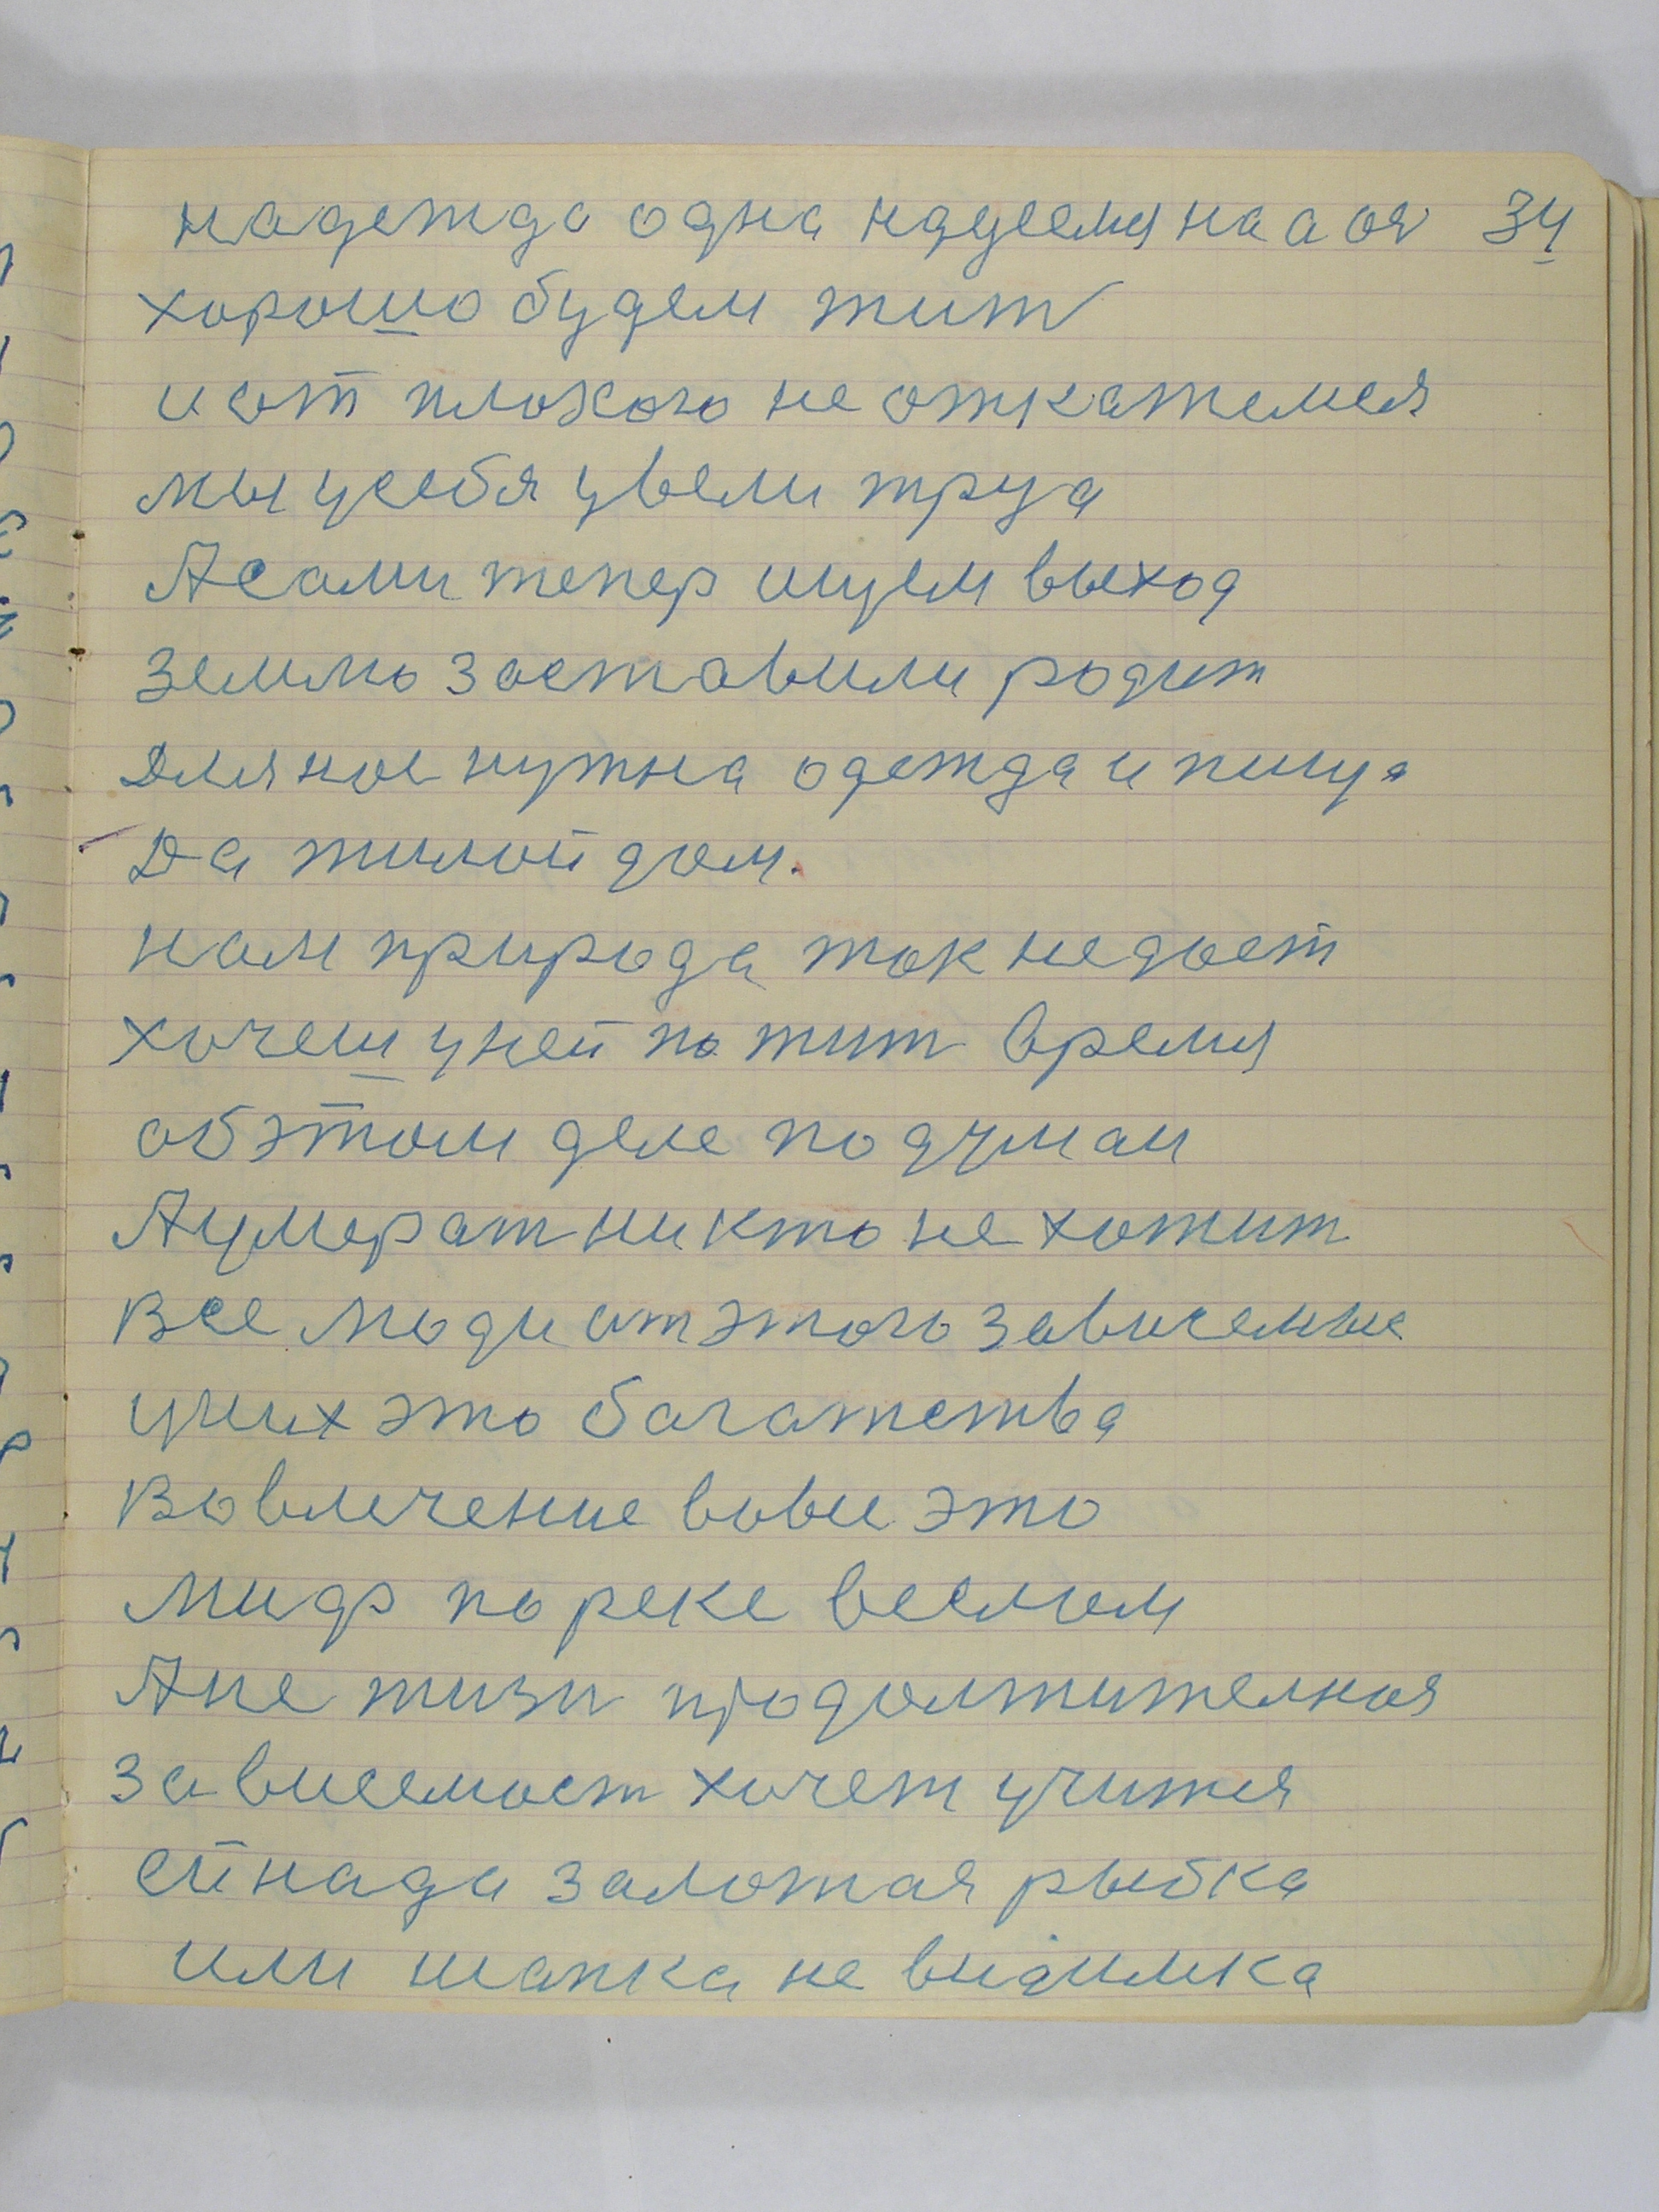 надежда одна надеемся на а 34
хорошо будем жит
и от плохого не откажемся
мы у себя увели труд
А сами тепер ищем выход
землю заставили родит
Для нас нужна одежда и пища
Да жилой дом.
нам природа так не дает
хочеш у ней пожит время
об этом деле подумаи
А умират никто не хотит
Все люди от этого зависемые
у них это багатства
Вовлечение вови это
Лидр по реке веслом
А не жизн продолжителная
Зависемаст хочет учится
ей нада залотая рыбка
или шапка не видимка